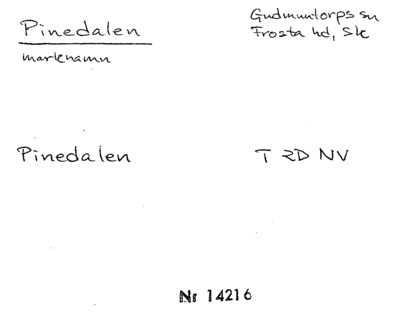 Pinedalen
Gudmuntorps sn
Frosta hd, Sk
marknamn
Pinedalen
T RD NV
Nr 14216